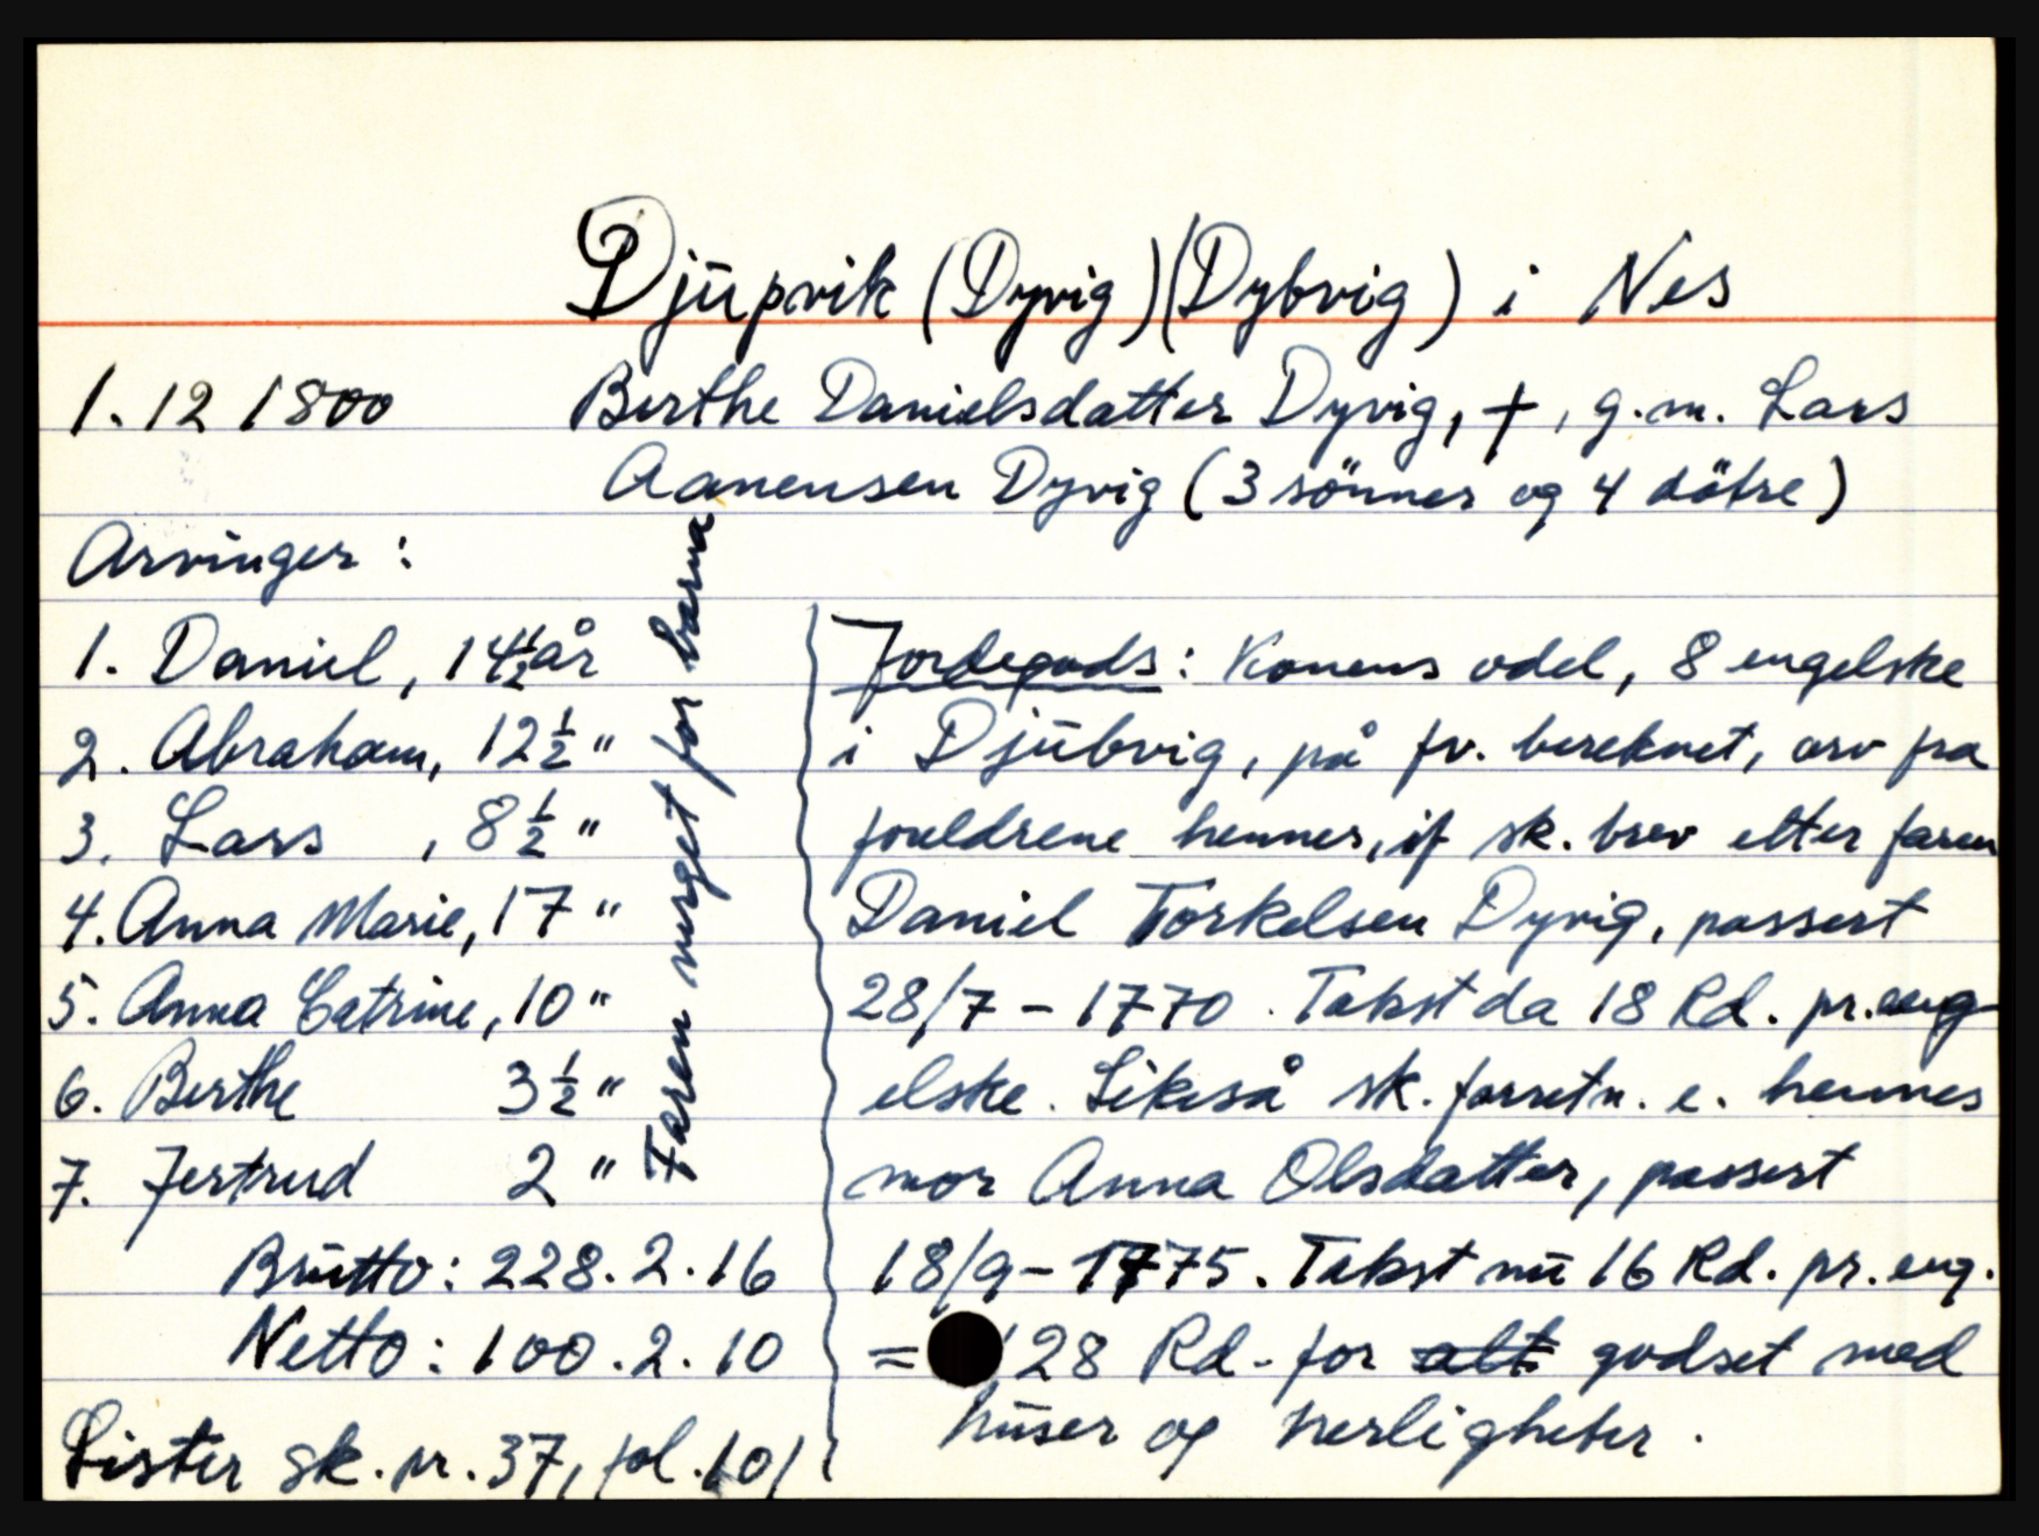 Djūpvik (Dyvig) (Dybvig) i Nes
1. 12 1800 Berthe Danielsdatter Dyvig, †, g.m. Lars
Aanensen Dyvig (3 sönner og 4 dötre)
Arvinger:
1. Daniel, 14½ år
2. Abraham, 12½ "
3. Lars , 8½ "
4. Anna Marie, 17 "
5. Anna Catrine, 10 "
6. Berthe 3½ "
7. Jertrud 2 "
Faren verget for barna
Brūtto: 228.2.16
Netto: 100.2.10
Lister sk. nr. 37, fol. 101
Jordegods: Konens odel, 8 engelske
i Djūbvig, på fv. bereknet, arv fra
foreldrene hennes, if sk. brev etter faren
Daniel Torkelsen Dyvig, passert
28/7 - 1770. Takst da 18 Rd. pr. eng-
elske. Likeså sk. forretn. e. hennes
mor Anna Olsdatter, passert
18/9 - 1775. Takst nū 16 Rd. pr. eng.
= 128 Rd. for alt godset med
hūser og herligheter.